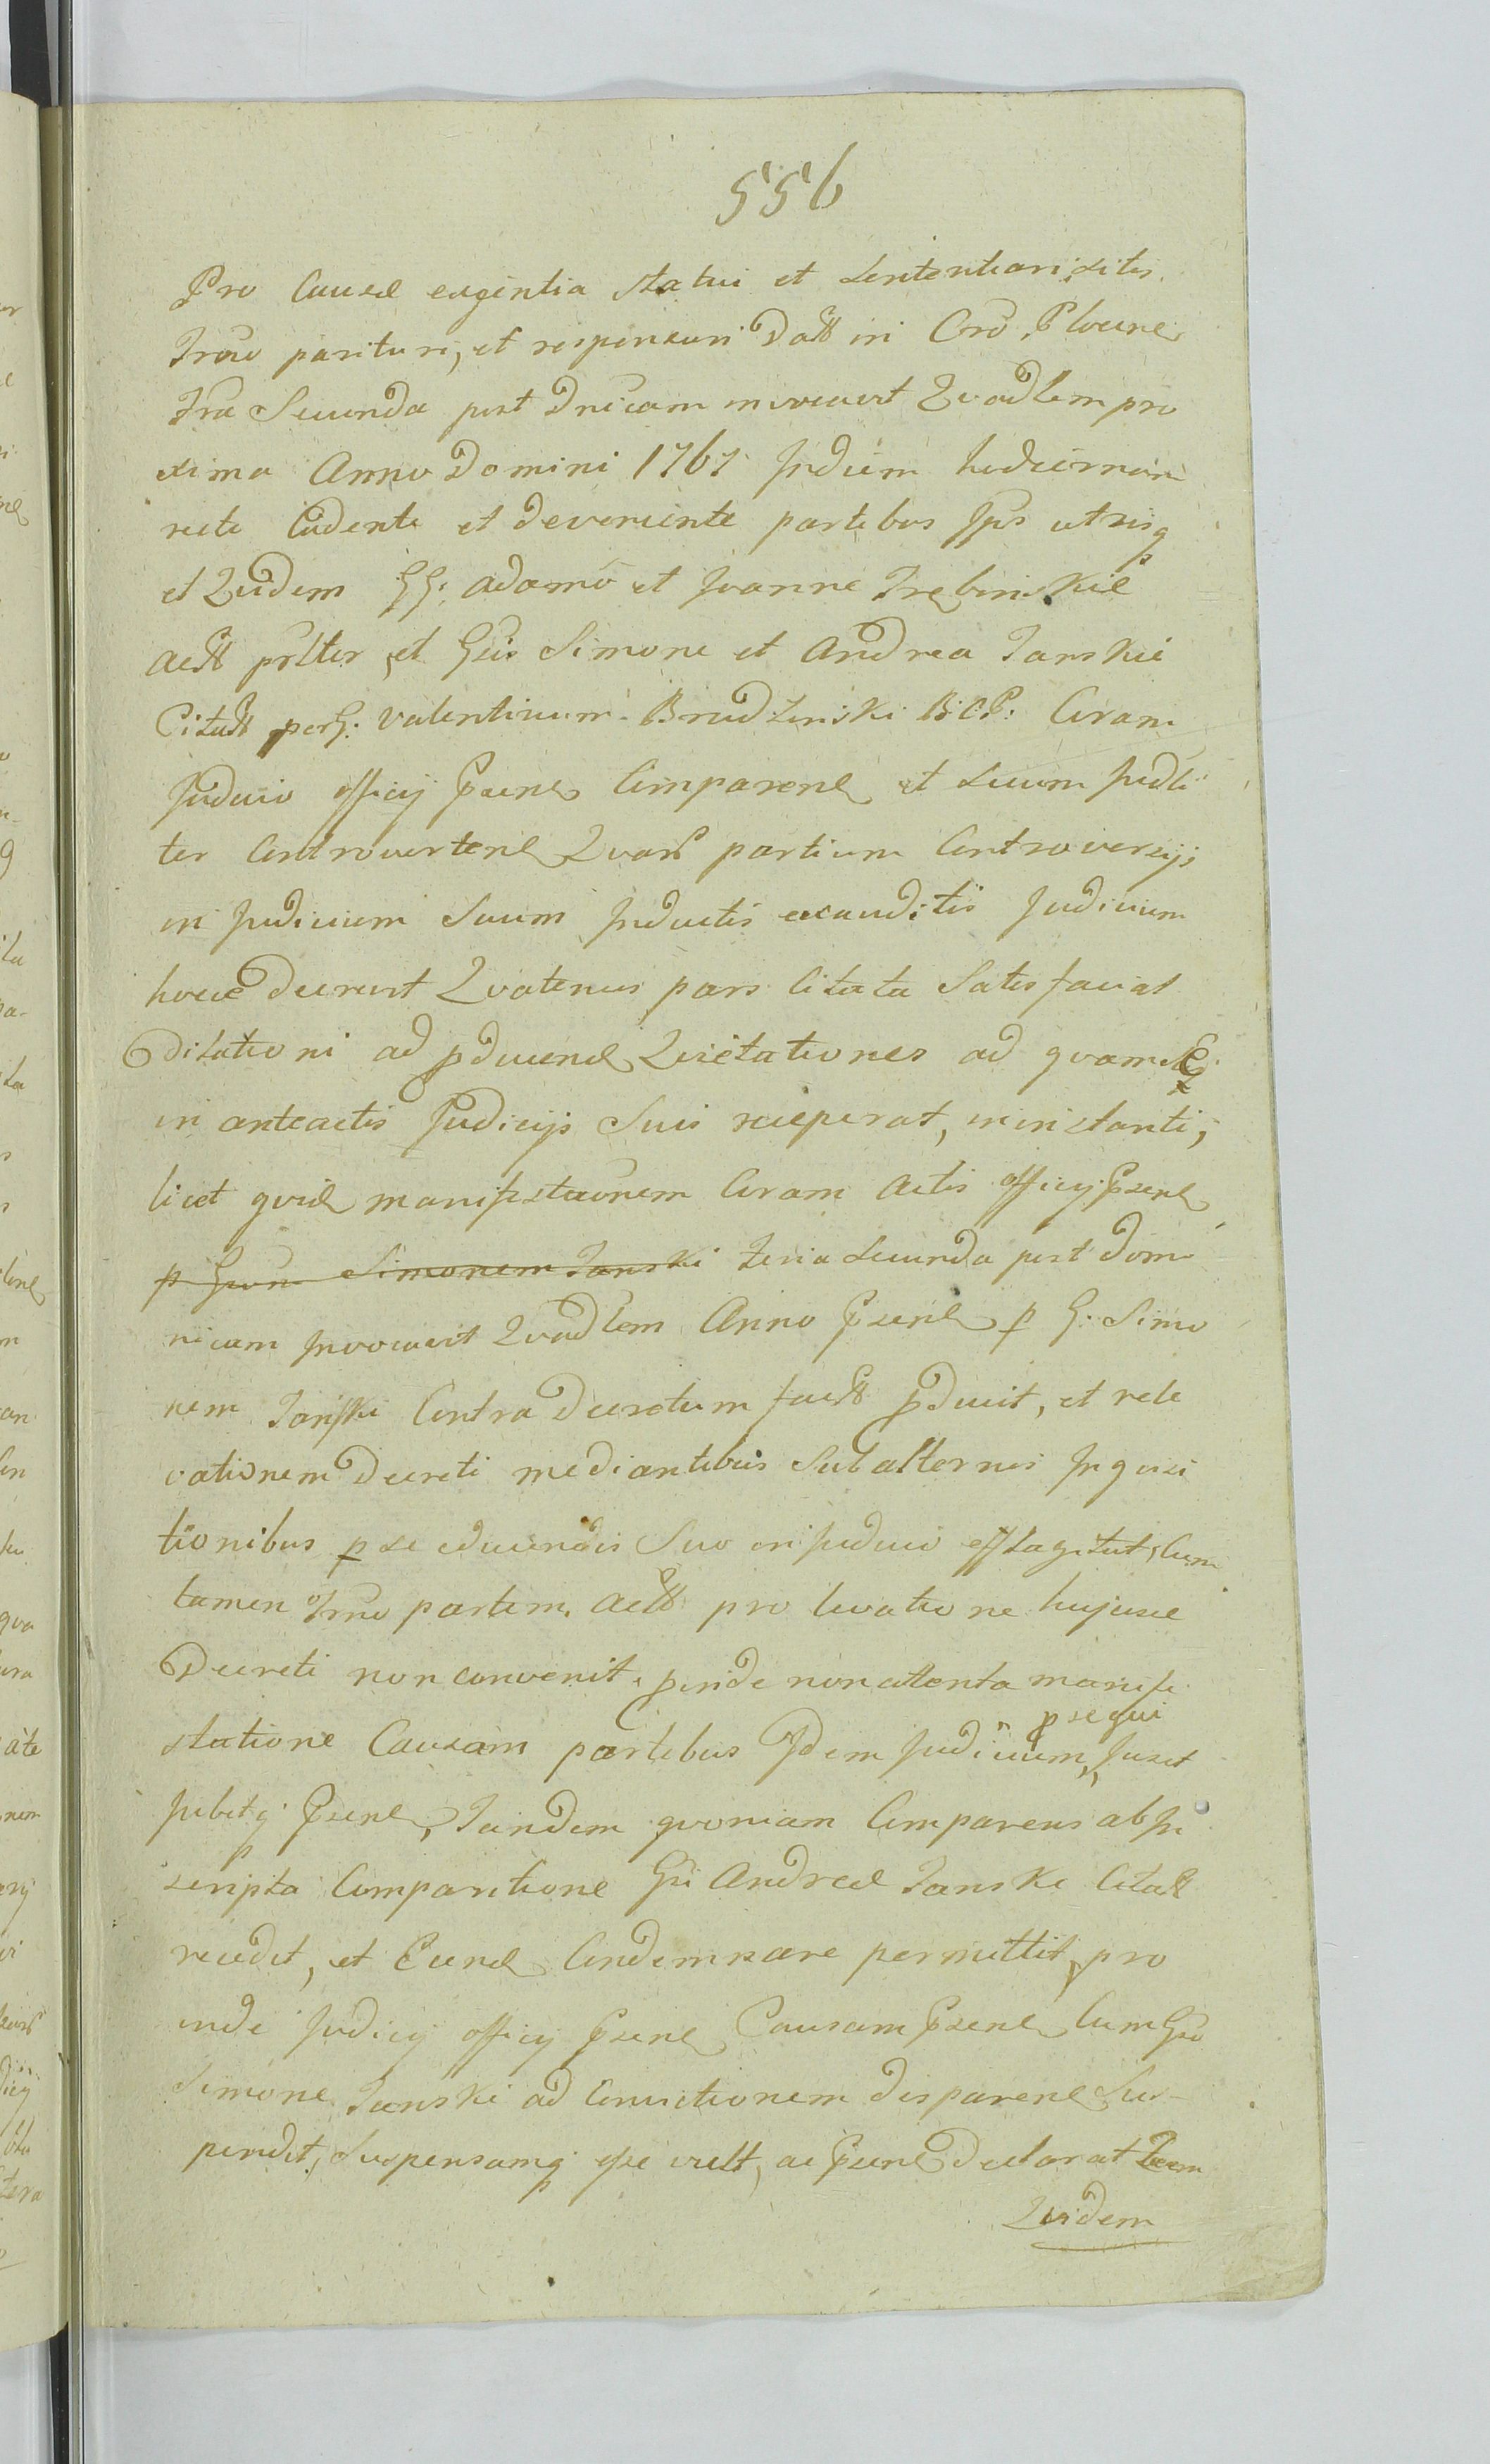 556
Pro Causæ exigentia statui et sententiari sitis
parituri, et responsuri Datt in Cro Plocenˢ
Fra Secunda post Dnicam invocavit Quadlem pro
xima Anno Domini 1767 In diem hodiernam
recte Cadente et deveniente partibus Ipis utrisq
et Quidem GG: Adamo et Joanne Trębinskie
actt prltter, et Gsis Simone et Andrea Janskie
Citatt per G: Valentinum Brudzinski B:C:P: Coram
Judicio officy Psenti Comparen et Secum Judli
ter Controverten Quarr partium Controversijs
in Judicium Suum Inductis exauditis Judicium
hocce Decrevit Quatenus pars Citata Satisfaciat
Dilationi ad pducend Quietationes ad quam
in anteactis Judicijs Suis receperat, in instanti,
licet quid manifestaonem Coram Actis officy Psent
p Gsum Simonem Janski Feria Secunda post Domi
nicam Invocavit Quadlem Anno Psent p G: Simo
nem Janski Contra Decretum factt pducit, et rele
vationem Decreti mediantibus Subalternis Inquisi
tionibus p se educendis Suo in judicio efflagitat, Cum
tamen partem Actt pro levatione hujusce
Decreti non convenit, perinde non attenta manife
statione Causam partibus Idem Judicium, psequi Jussit
Jubetq Psent, Tandem quoniam Comparens ab In
scripta Comparitione Gsi Andreæ Janski Citatt
recedit, et Eund Condemnare permittit, pro
inde Judicy officy Psent Causam Psent Cum Gso
Simone Janski ad Convictionem disparent Sus-
pendit, Suspensamq esse vult, ac Psent Declarat
Quidem